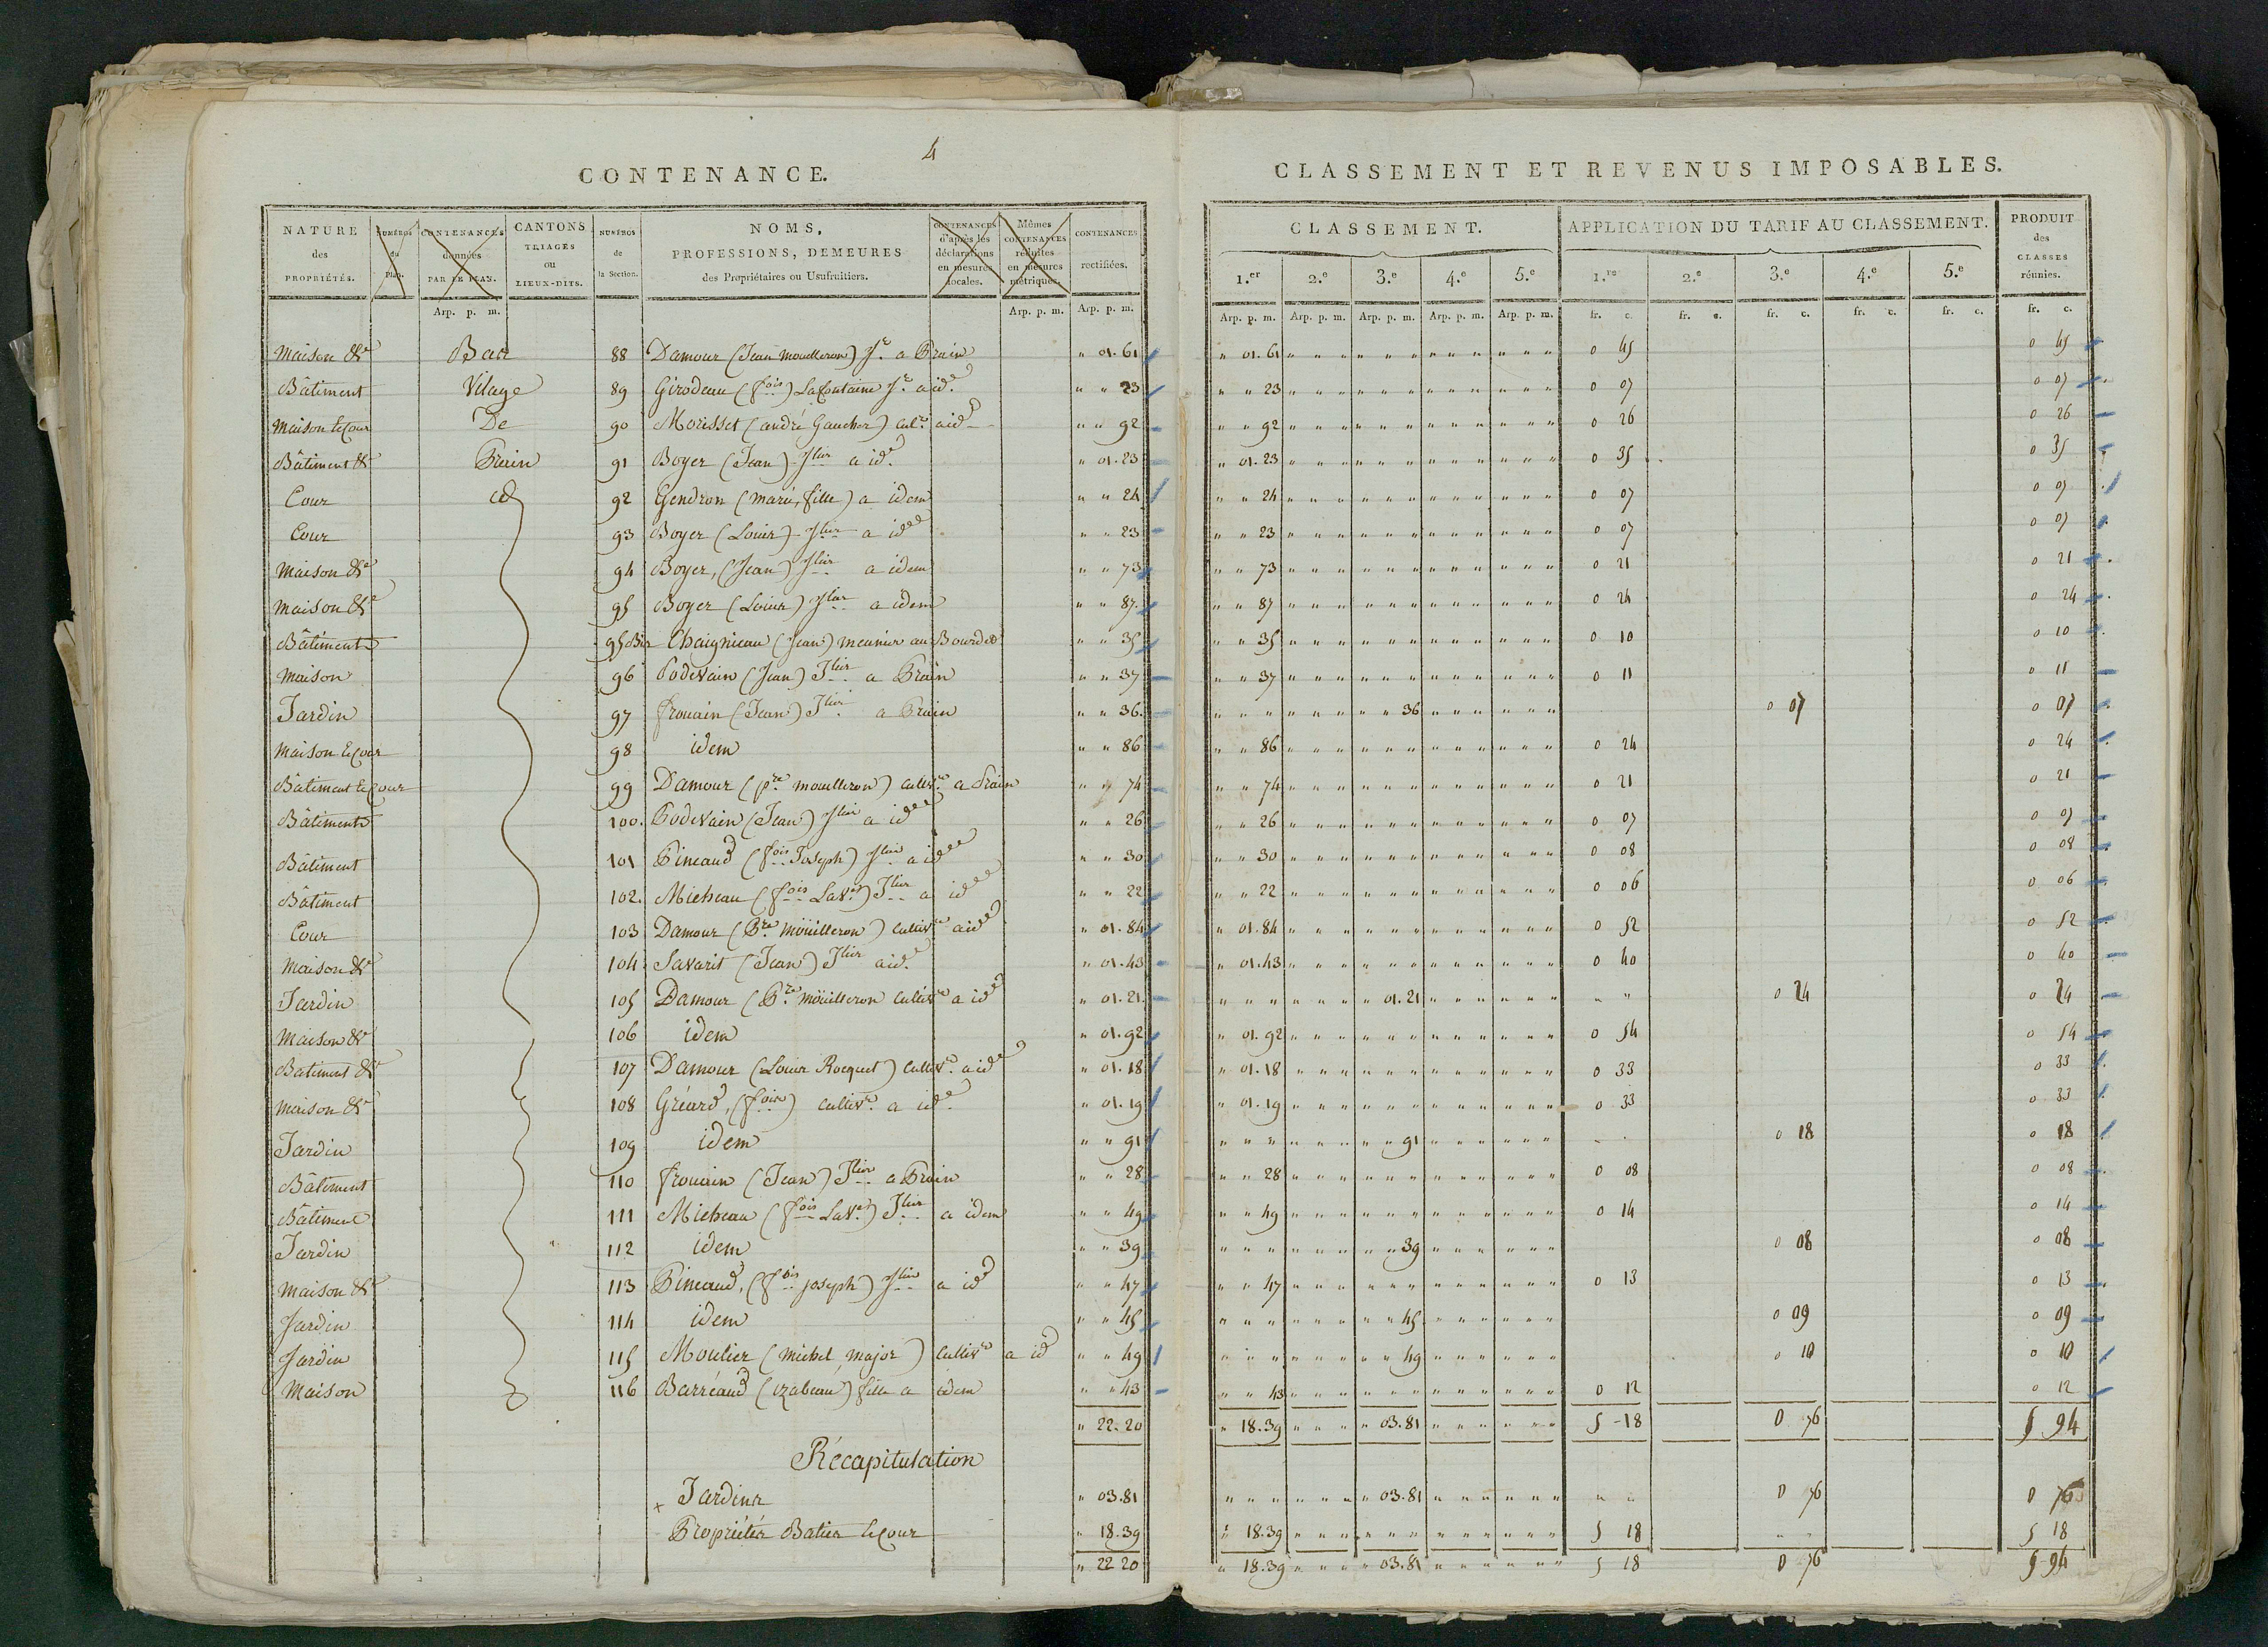 4
CONTENANCE.
NATURE des PROPRIÉTÉS. NUMÉROS du Plan. CONTENANCES données PAR LE PLAN. CANTONS TRIAGES ou LIEUX-DITS. NUMÉROS de la Section. NOMS, PROFESSIONS, DEMEURES des Propriétaires ou Usufruitiers. CONTENANCES d'après les déclarations en mesures locales. Mêmes CONTENANCES réduites en mesures métriques. CONTENANCES rectifiées.
Arp. p. m. Arp. p. m. Arp. p. m.
Maison &c Bas 88 Damour (Jean Mouilleron) Jr. a Brain " 01.61
Bâtiment Vilage 89 Girodeau (fois) Lafontaine Jr a ide. " " 23
Maison & Cour De 90 Morisset (andré Gaucher) culr. a id " " 92
Bâtiment & Brain 91 Boyer (Jean) Jlier a id. " 01.23
Cour id 92 Gendron (marie, fille) a idem " " 24
Cour 93 Boyer (Louis) Jlier a id " " 23
Maison &c 94 Boyer, (Jean) Jlier a idem " " 73
Maison &c 95 Boyer (Louis) Jlier a idem " " 87
Bâtiment 95 Bis Chaigneau (Jean) meunier au Bourdet " " 35
Maison 96 Podevain (Jean) Jlier a Brain " " 37
Jardin 97 frouin (Jean) Jlier a Brain " " 36.
Maison & Cour 98 idem " " 86
Bâtiment & Cour 99 Damour (pre mouilleron) cultivr. a Brain " " 74
Bâtiment 100. Podevain (Jean) Jlier a id " " 26
Bâtiment 101 Pineaud (fois Joseph) Jlier a id " " 30
Bâtiment 102. Micheau (fois Lavt.) Jlier a id " " 22
Cour 103 Damour (Pre Moüilleron) cultivr a id " 01.84
Maison & 104. Savarit (Jean) Jlier a id. " 01.43
Jardin 105 Damour (Pre moüilleron cultivr a id " 01.21.
Maison & 106 idem " 01.92
Batiment & 107 Damour (Louis Rocquet) cultivr. a id " 01.18
Maison & 108 Gréard, (fois) cultivr. a id " 01.19
Jardin 109 idem " " 91
Bâtiment 110 frouin (Jean) Jlier a Brain " " 28
Bâtiment 111 Micheau (fois Lavt.) Jlier a idem " " 49
Jardin 112 idem " " 39
Maison & 113 Pineaud, (fois joseph) Jlier a id " " 47
Jardin 114 idem " " 45
Jardin 115 Moulier (michel major) cultivr a id " " 49
Maison 116 Barréaud (izabeau) fille a idem " " 43
" 22.20
Récapitulation
+ Jardins " 03.81
Propriétés Baties & cour " 18.39
" 22 20
CLASSEMENT ET REVENUS IMPOSABLES.
CLASSEMENT. APPLICATION DU TARIF AU CLASSEMENT. PRODUIT des CLASSES réunies.
1.er 2.e 3.e 4.e 5.e 1.re 2.e 3.e 4.e 5.e
Arp. p. m. Arp. p. m. Arp. p. m. Arp. p. m. Arp. p. m. fr. c. fr. c. fr. c. fr. c. fr. c. fr. c.
" 01.61 0 45 0 45
" " 23 0 07 0 07
" " 92 0 26 0 26
" 01.23 0 35 0 35
" " 24 0 07 0 07
" " 23 0 07 0 07
" " 73 0 21 0 21
" " 87 0 24 0 24
" " 35 0 10 0 10
" " 37 0 11 0 11
" " 36 0 07 0 07
" " 86 0 24 0 24
" " 74 0 21 0 21
" " 26 0 07 0 07
" " 30 0 08 0 08
" " 22 0 06 0 06
" 01.84 0 52 0 52
" 01.43 0 40 0 40
" 01.21 " " 0 24 0 24
" 01.92 0 54 0 54
" 01.18 0 33 0 33
" 01.19 0 33 0 33
" " 91 0 18 0 18
" " 28 0 08 0 08
" " 49 0 14 0 14
" " 39 0 08 0 08
" " 47 0 13 0 13
" " 45 0 09 0 09
" " 49 0 10 0 10
" " 43 0 12 0 12
" 18.39 " 03.81 5-18 0 76 5 94
" 03.81 " " 0 76 0 76
" 18.39 5 18 5 18
" 18.39 " 03.81 5 18 0 76 5 94